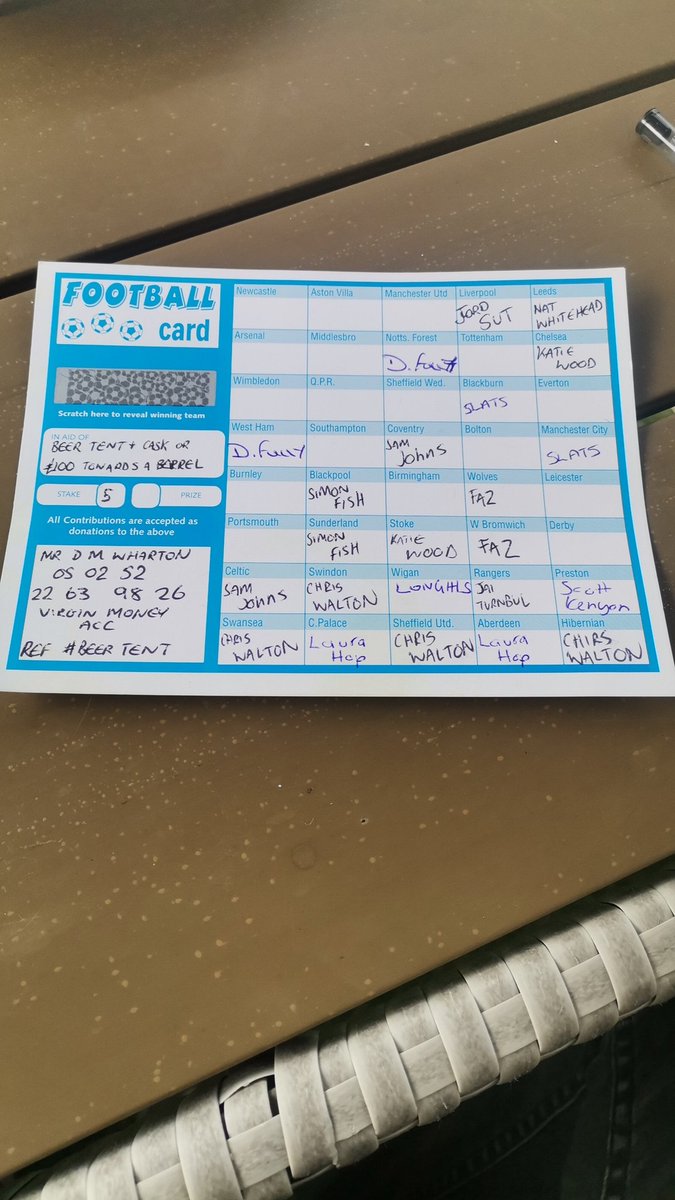 FOOTBALL
card
Scratch here to reveal winning team
IN AID OF
BEER TENT + CASK OR
£100 TOWARDS A BARREL
STAKE 5 PRIZE
All Contributions are accepted as
donations to the above
MR D M WHARTON
05 02 52
22 63 98 26
VIRGIN MONEY
ACC
REF #BEER TENT
Newcastle Aston Villa Manchester Utd Liverpool Leeds
JORD SUT NAT WHITEHEAD
Arsenal Middlesbro Notts. Forest Tottenham Chelsea
D. KATIE WOOD
Wimbledon Q.P.R. Sheffield Wed. Blackburn Everton
SLATS
West Ham Southampton Coventry Bolton Manchester City
D. SAM Johns SLATS
Burnley Blackpool Birmingham Wolves Leicester
SIMON FISH FAZ
Portsmouth Sunderland Stoke W Bromwich Derby
SIMON FISH KATIE WOOD FAZ
Celtic Swindon Wigan Rangers Preston
SAM Johns CHRIS WALTON JAI TURNBUL Scott Kenyon
Swansea C.Palace Sheffield Utd. Aberdeen Hibernian
CHRIS WALTON Laura Hap CHRIS WALTON Laura Hap CHIRS WALTON